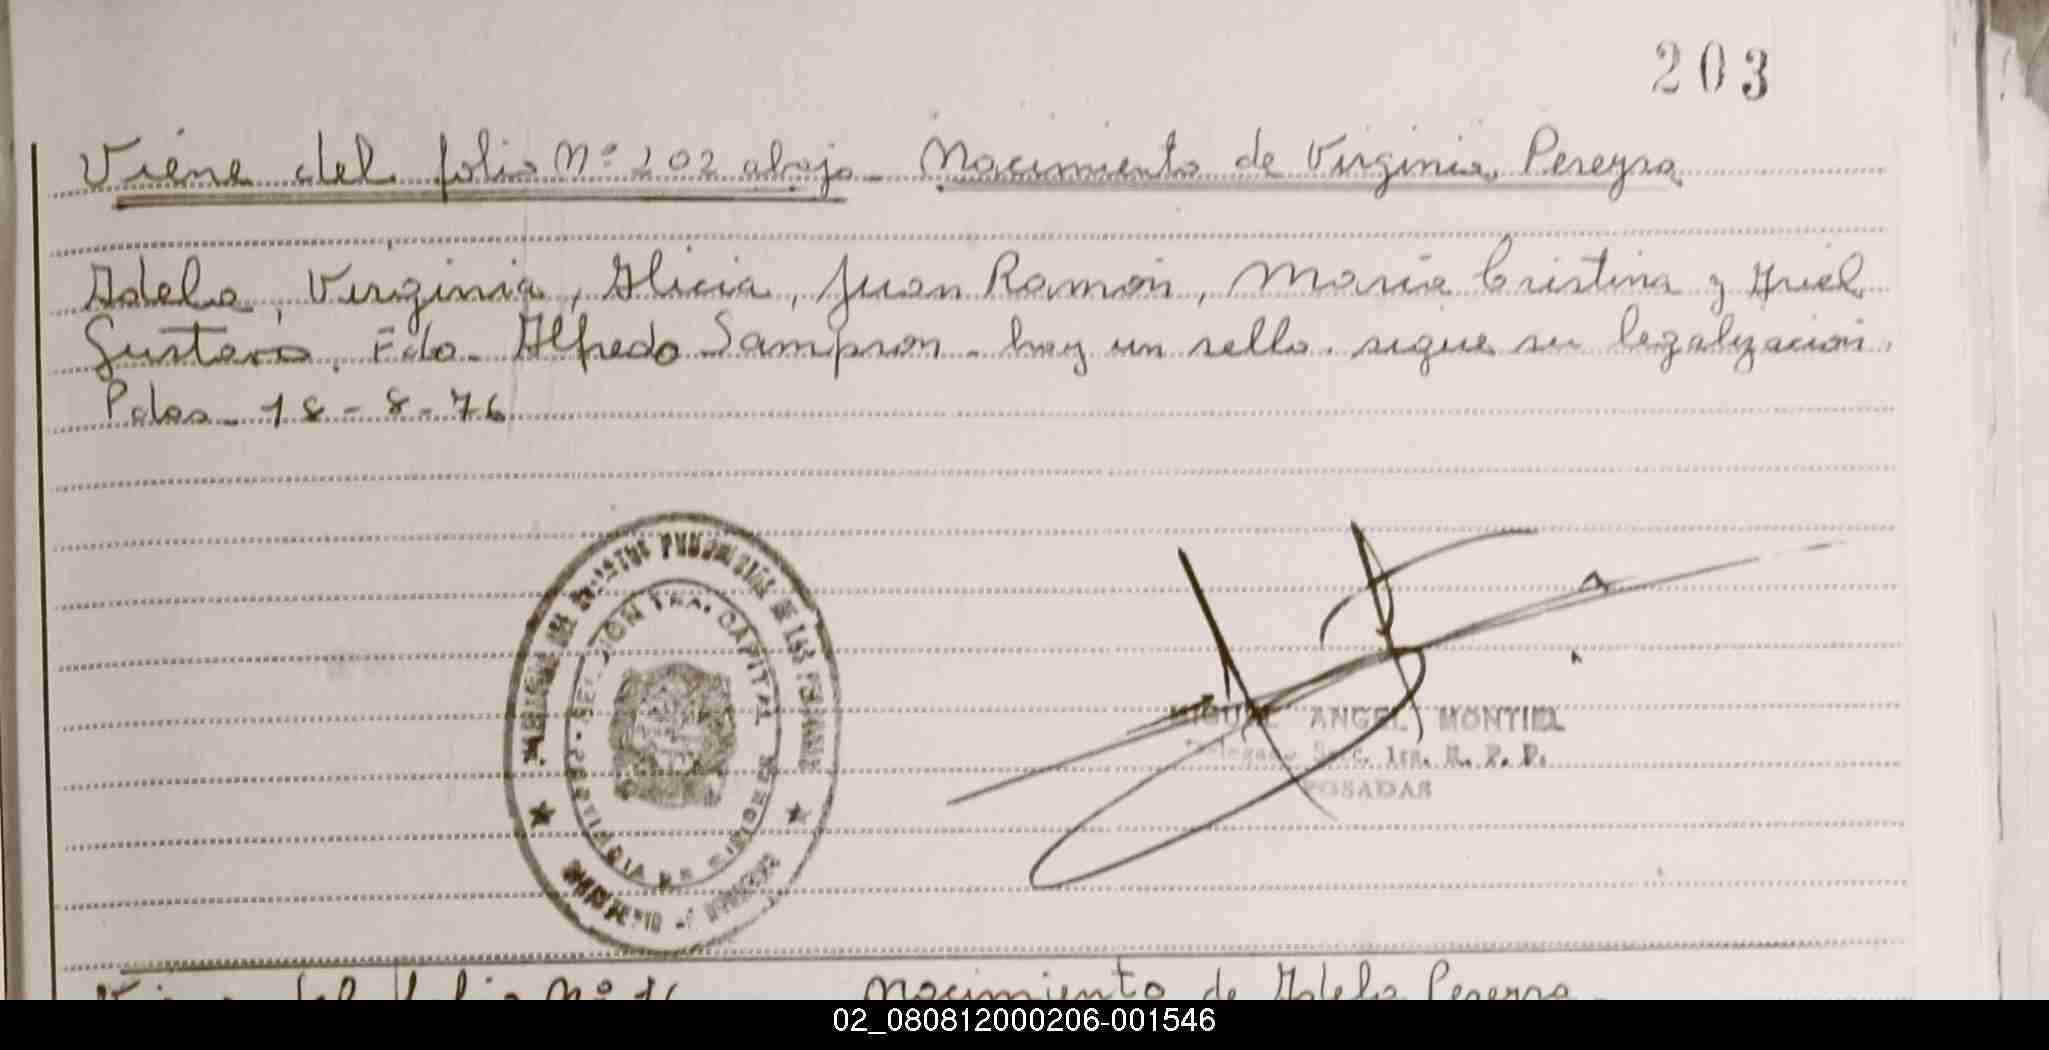 203
Viene del folio Nº 202 abajo - Nacimiento de Virginia Pereyra
Adela, Virginia, Alicia, Juan Ramón, María Cristina y Ariel
Gustavo. Fdo. Alfredo Sampron - hay un sello. sigue su legalización.
Pdas - 18 - 8 - 76
SECCION 1ra. CAPITAL
PROVINCIA DE MISIONES
MIGUEL ANGEL MONTIEL
Delegado Secc. 1ra. R. P. P.
POSADAS
Viene del folio Nº Nacimiento de Adela Pereyra -
02_080812000206-001546